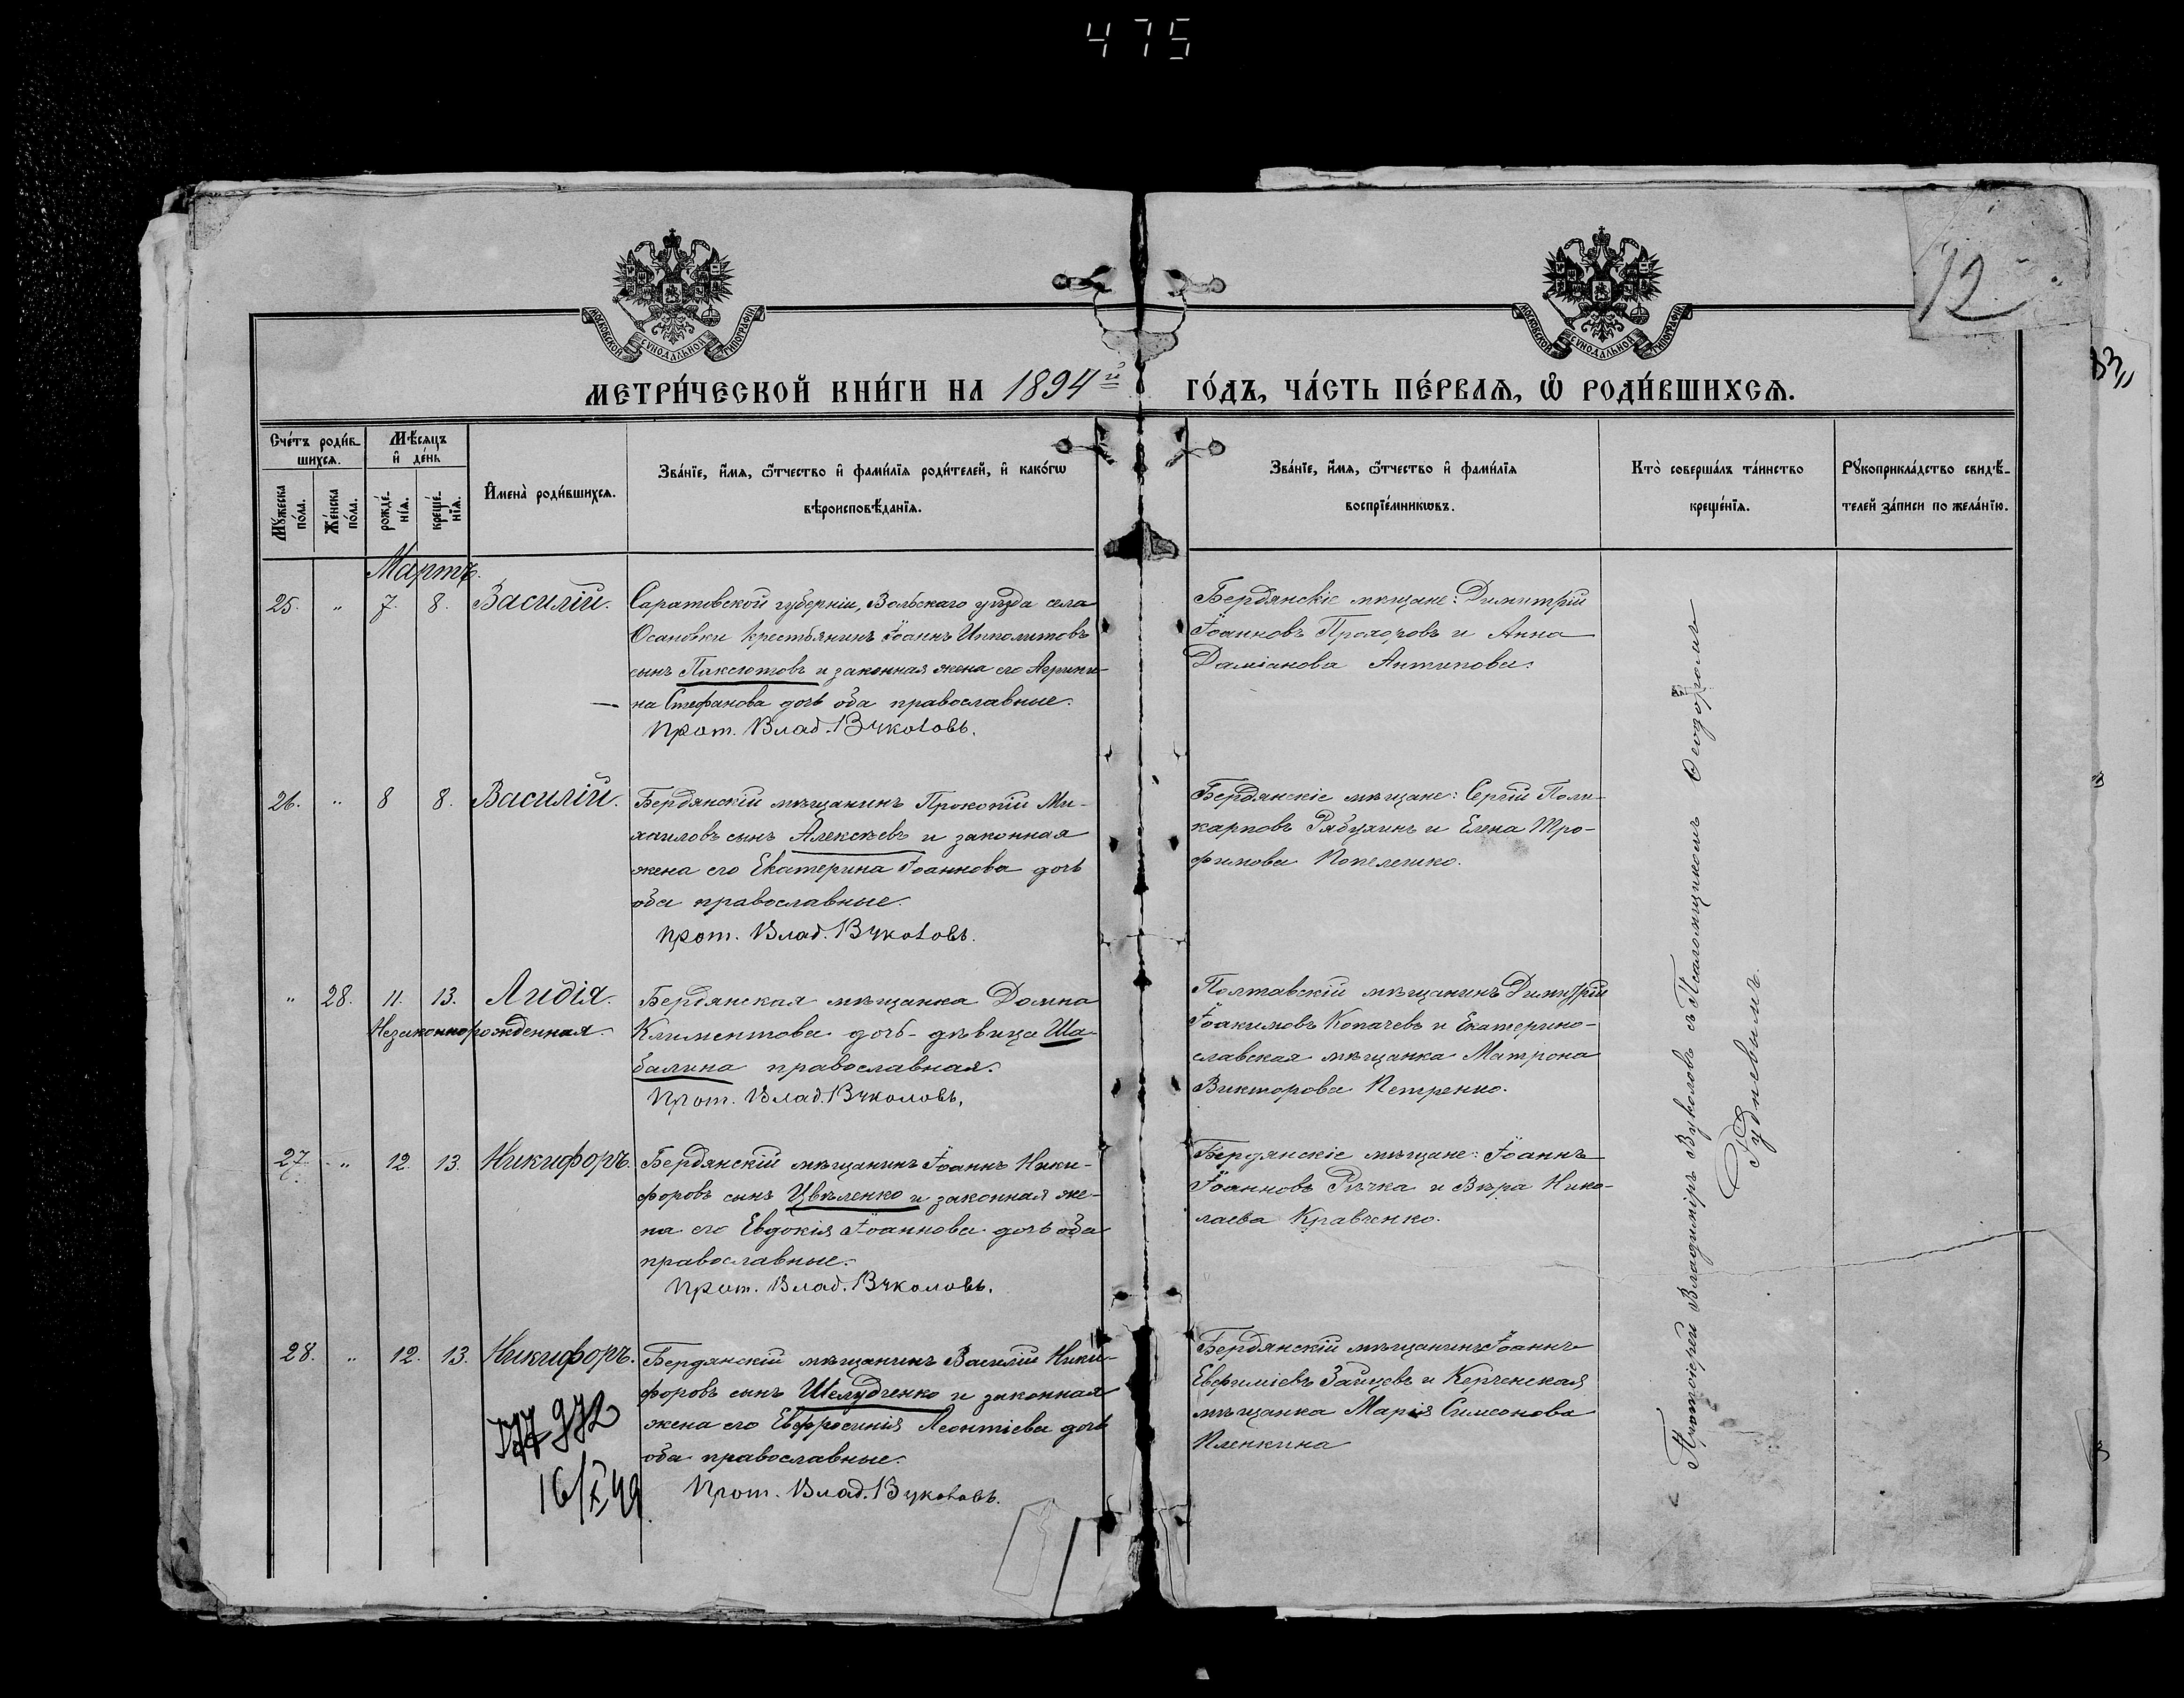 475
12
83
МОСКОВСКОЙ СѴНОДАЛЬНОЙ ТИПОГРАФІИ
МОСКОВСКОЙ СѴНОДАЛЬНОЙ ТИПОГРАФІИ
МЕТРИ́ЧЕСКОЙ КНИ́ГИ НА 1894й ГО́ДЪ, ЧА́СТЬ ПЕ́РВАѦ, Ѡ҆ РОДИ́ВШИХСѦ.
Сче́тъ роди́вшихсѧ.
Мꙋ́жеска по́ла.
Же́нска по́ла.
Мѣ́сѧцъ и҆ де́нь
рожде́нїѧ.
креще́нїѧ.
И҆мена̀ роди́вшихсѧ.
Зва́нїе, и҆́мѧ, ѻ҆́тчество и҆ фами́лїѧ роди́телей, и҆ како́гѡ
вѣроисповѣ́данїѧ.
Зва́нїе, и҆́мѧ, ѻ҆́тчество и҆ фами́лїѧ
воспрїе́мникѡвъ.
Кто̀ соверша́лъ та́инство
креще́нїѧ.
Рꙋкоприкла́дство свидѣ́-
телей за́писи по жела́нїю.
Мартъ.
25. " 7. 8. Василій.
Саратовской губерніи, Вольскаго уѣзда села
Осановки крестьянинъ Іоаннъ Ипполитовъ
сынъ Паксютовъ и законная жена его Агрипи-
на Стефанова дочь оба православные.
Прот. Влад. Вуколовъ.
Бердянскіе мѣщане: Димитрій
Іоанновъ Прохоровъ и Анна
Даміанова Антипова.
26. " 8 8. Василій.
Бердянскій мѣщанинъ Прокопій Ми-
хаиловъ сынъ Алексѣевъ и законная
жена его Екатерина Іоаннова дочь
оба православные.
Прот. Влад. Вуколовъ.
Бердянскіе мѣщане: Сергій Поли-
карповъ Рябухинъ и Елена Тро-
фимова Копелешко.
" 28. 11. 13. Лидія.
Незаконнорожденная.
Бердянская мѣщанка Домна
Климентова дочь-дѣвица Ша-
балина православная.
Прот. Влад. Вуколовъ.
Полтавскій мѣщанинъ Димитрій
Іоакимовъ Копачевъ и Екатерино-
славская мѣщанка Матрона
Викторова Петренко.
27. " 12. 13. Никифоръ.
Бердянскій мѣщанинъ Іоаннъ Ники-
форовъ сынъ Цвѣленко и законная же-
на его Евдокія Іоаннова дочь оба
православные.
Прот. Влад. Вуколовъ.
Бердянскіе мѣщане: Іоаннъ
Іоанновъ Рѣчка и Вѣра Нико-
лаева Кравченко.
28. " 12. 13. Никифоръ.
Бердянскій мѣщанинъ Василій Ники-
форовъ сынъ Шелудченко и законная
жена его Евфросинія Леонтіева дочь
оба православные.
Прот. Влад. Вуколовъ.
16/X 49
Бердянскій мѣщанинъ Іоаннъ
Евфиміевъ Зайцевъ и Керченская
мѣщанка Марія Симеонова
Пленкина
Протоіерей Владиміръ Вуколовъ съ Псаломщикомъ Ѳеодоромъ
Рудневымъ.